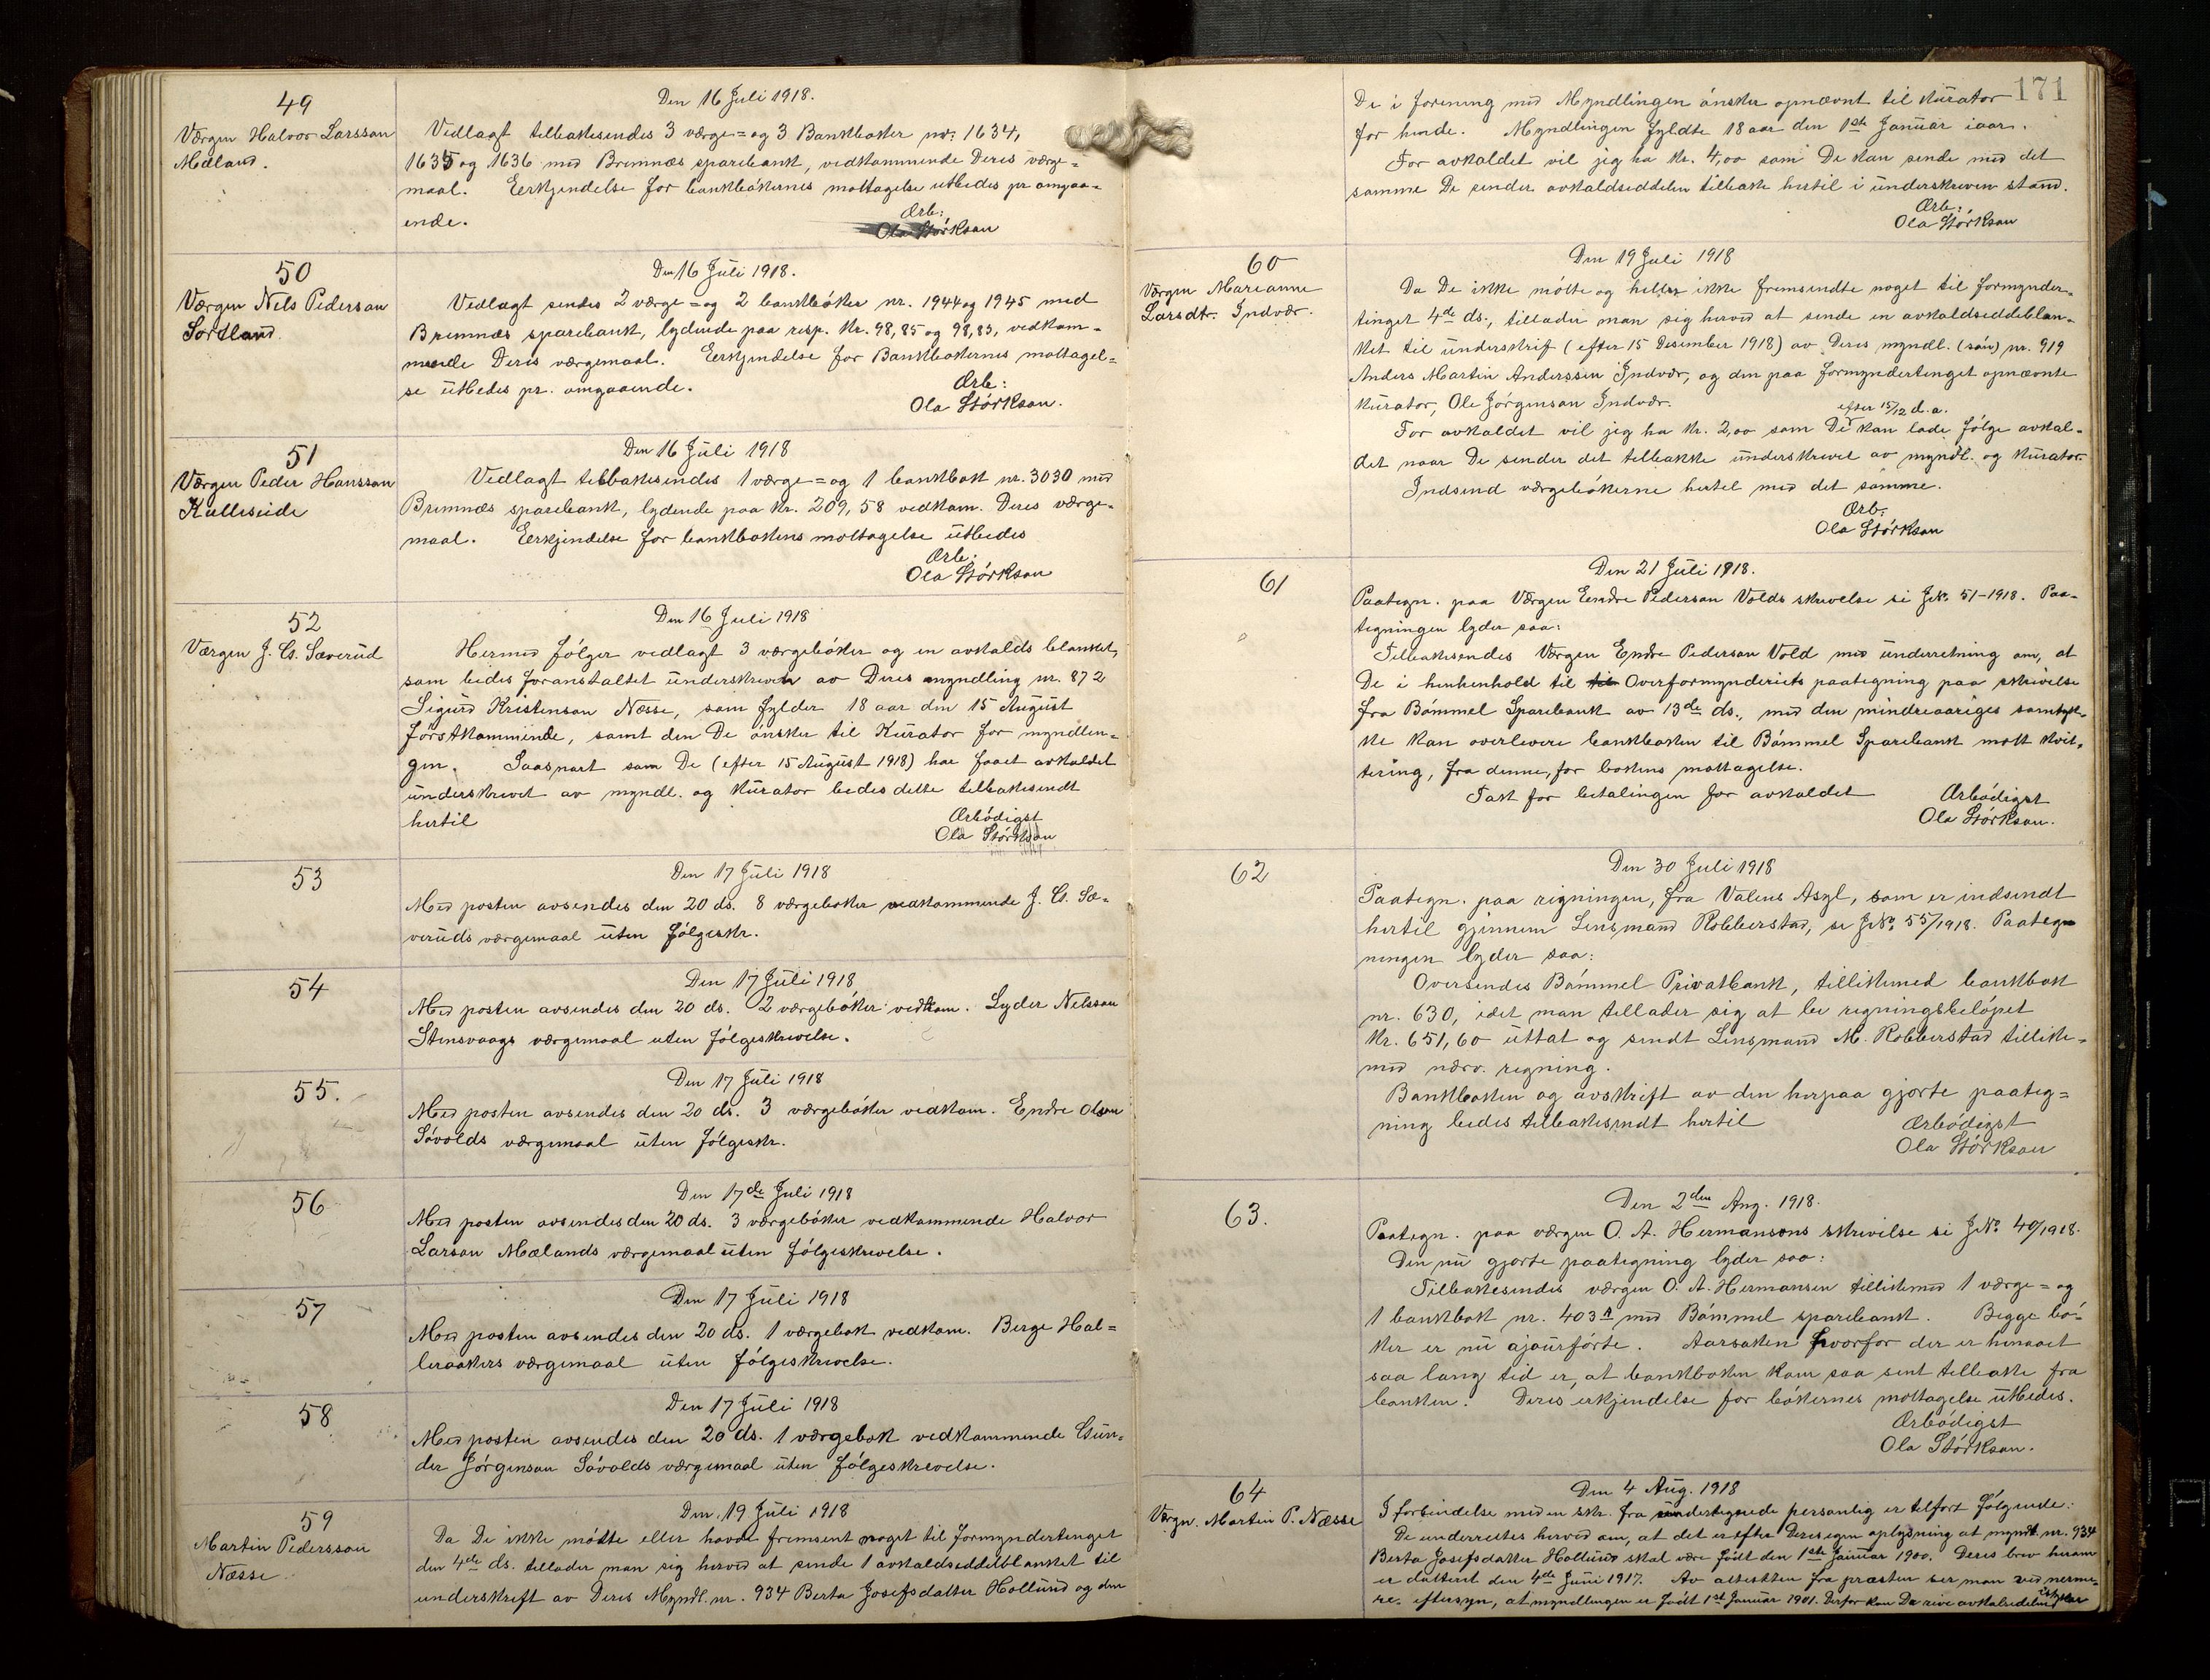 49
Værgen Halvor Larsson
Mæland.
Den 16 Juli 1918.
Vedlagt tilbakesendes 3 værge= og 3 Bankbøker nr. 1634,
1635 og 1636 med Bremnæs sparebank, vedkommende Deres værge=
maal. Eerkjendelse for bankbøkernes mottagelse utbedes pr omgaa=
ende.
Ærb:
Ola Størkson
50
Værgen Nels Pederson
Sortland.
Den 16 Juli 1918.
Vedlagt sendes 2 værge= og 2 bankbøker nr. 1944 og 1945 med
Bremnæs sparebank, lydende paa resp. Kr. 98,85 og 98,83, vedkom=
mende Deres værgemaal. Eerkjendelse for Bankbøkernes mottagel=
se utbedes pr. omgaaende.
Ærb:
Ola Størkson.
51
Værgen Peder Hansson
Kulleseide
Den 16 Juli 1918
Vedlagt tilbakesendes 1 værge= og 1 bankbok nr. 3030 med
Bremnæs sparebank, lydende paa Kr. 209,58 vedkom. Deres værge=
maal. Eerkjendelse for bankbokens mottagelse utbedes
Ærb.
Ola Størkson
52
Værgen J. G. Sæverud
Den 16 Juli 1918
Hermed følger vedlagt 3 værgebøker og en avkalds blanket,
som bedes foranstaltet underskreven av Deres myndling nr. 872
Sigurd Kristenson Næsse, som fylder 18 aar den 15 August
førstkommende, samt den De ønsker til Kurator for myndlin=
gen. Saasnart som De (efter 15 August 1918) har faaet avkaldet
underskrevet av myndl. og Kurator bedes dette tilbakesendt
hertil
Ærbødigst
Ola Størkson
53
Den 17 Juli 1918
Med posten avsendes den 20 ds. 8 værgebøker vedkommende J. G. Sæ=
veruds værgemaal uten følgeskr.
54
Den 17 Juli 1918
Med posten avsendes den 20 ds. 2 værgebøker vedkom. Lyder Nelsson
Stensvaags værgemaal uten følgeskrivelse.
55.
Den 17 Juli 1918
Med posten avsendes den 20 ds. 3 værgebøker vedkom. Endre Olson
Søvolds værgemaal uten følgeskr.
56
Den 17de Juli 1918
Med posten avsendes den 20 ds. 3 værgebøker vedkommende Halvor
Larson Mælands værgemaal uten følgeskrivelse.
57
Den 17 Juli 1918
Med posten avsendes den 20 ds. 1 værgebok vedkom. Berge Hal=
leraakers værgemaal uten følgeskrivelse.
58
Den 17 Juli 1918
Med posten avsendes den 20 ds. 1 værgebok vedkommende Gun=
der Jørgenson Søvolds værgemaal uten følgeskrivelse.
59
Martin Pedersson
Næsse.
Den 19 Juli 1918
Da De ikke møtte eller havde fremsent noget til formyndertinget
den 4de ds. tillader man sig herved at sende 1 avkaldseddelblanket til
underskrift av Deres Myndl. nr. 934 Berta Josefsdatter Hollund og den
171
De i forening med Myndlingen ønsker opnævnt til Kurator
for hende. Myndlingen fyldte 18 aar den 1ste Januar iaar.
For avkaldet vil jeg ha Kr. 4,00 som De kan sende med det
samme De sender avkaldseddelen tilbake hertil i underskreven stand.
Ærb:
Ola Størkson
60
Værgen Marianne
Larsdtr. Indvær.
Den 19 Juli 1918
Da De ikke møtte og heller ikke fremsendte noget til formynder=
tinget 4de ds., tillader man sig herved at sende en avkaldseddelblan=
ket til underskrif (efter 15 Desember 1918) av Deres myndl. (søn) nr. 919
Anders Martin Anderssen Indvær, og den paa formyndertinget opnævnte
Kurator, Ole Jørgenson Indvær.
efter 15/12 d.a.
For avkaldet vil jeg ha Kr. 2,00 som De kan lade følge avkal=
det naar De sender det tilbakke underskrevet av myndl. og Kurator.
Indsend værgebøkerne hertil med det samme.
Ærb:
Ola Størkson
61
Den 21 Juli 1918.
Paategn. paa Værgen Eendre Pederson Volds skrivelse se J.No. 51-1918. Paa=
tegningen lyder saa:
Tilbakesendes Værgen Endre Pederson Vold med underretning om, at
De i henhenhold til til Overformynderiets paategning paa skrivelse
fra Bømmel Sparebank av 13de ds., med den mindreaariges samtyk=
ke kan overlevere bankboken til Bømmel Sparebank mott kvit=
tering, fra denne, for bokens mottagelse.
Takk for betalingen for avkaldet
Ærbødigst
Ola Størkson.
62
Den 30 Juli 1918
Paategn. paa regningen, fra Valens Asyl, som er indsendt
hertil gjennem Lensmand Robberstad, se J.No. 55/1918. Paateg=
ningen lyder saa:
Oversendes Bømmel Privatbank, tillikemed bankbok
nr. 630, idet man tillader sig at be regningsbeløpet
Kr. 651,60 uttat og sendt Lensmand M. Robberstad tillike=
med nærv. regning.
Bankboken og avskrift av den herpaa gjorte paateg=
ning bedes tilbakesendt hertil
Ærbødigst
Ola Størkson
63.
Den 2den Aug. 1918.
Paategn. paa værgen O. A. Hermansens skrivelse se J.No. 40/1918.
Den nu gjorte paategning lyder saa:
Tilbakesendes værgen O. A. Hermansen tillikemed 1 værge= og
1 bankbok nr. 403A med Bømmel sparebank. Begge bø=
ker er nu ajourførte. Aarsaken hvorfor der er hengaaet
saa lang tid er, at bankboken kom saa sent tilbake fra
banken. Deres erkjendelse for bøkernes mottagelse utbedes.
Ærbødigst
Ola Størkson.
64
Værgn. Martin P. Næsse
Den 4 Aug. 1918
I forbindelse med en skr. fra undertegnede personlig er tilført følgende:
De underrettes herved om, at det er efter Deres egen oplysning at myndl. nr. 934
Berta Josefsdatter Hollund skal være født den 1ste Januar 1900. Deres brev herom
er datteret den 4de Juni 1917. Av attestten fra præsten ser man ved nerme=
re eftersyn, at myndlingen er født 1st Januar 1901. Derfor kan De rive avkaldsedelen istykker